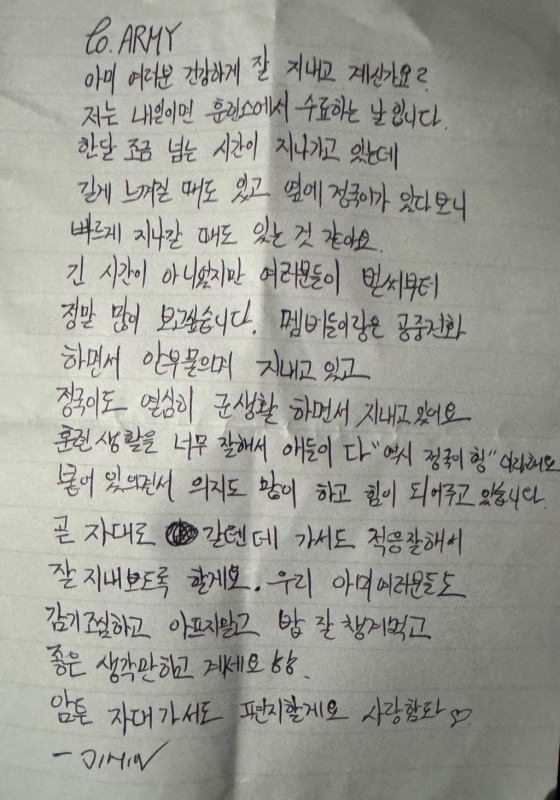 to. ARMY
아미 여러분 건강하게 잘 지내고 계신가요?
저는 내일이면 훈련소에서 수료하는 날 입니다.
한달 조금 넘는 시간이 지나가고 있는데
길게 느껴질 때도 있고 옆에 정국이가 있다보니
빠르게 지나갈 때도 있는 것 같아요.
긴 시간이 아니였지만 여러분들이 벌써부터
정말 많이 보고싶습니다. 멤버들이랑은 공중전화
하면서 안부물으며 지내고 있고
정국이도 열심히 군생활 하면서 지내고있어요
훈련생활을 너무 잘해서 애들이 다 "역시 정국이형" 이래요
붙어 있으면서 의지도 많이 하고 힘이 되어주고 있습니다.
곧 자대로 갈텐데 가서도 적응잘해서
잘 지내보도록 할게요. 우리 아미여러분들도
감기조심하고 아프지말고 밥 잘 챙겨먹고
좋은 생각만하고 계세요
암튼 자대가서도 편지할게요 사랑함돠 ♡
- JIMIN